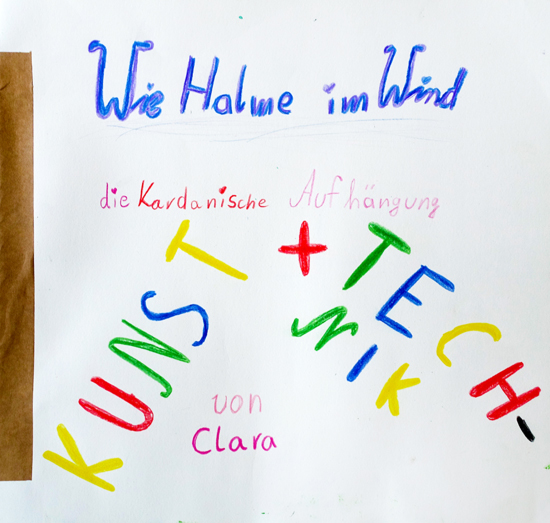 Wie Halme im Wind
die Kardanische Aufhängung
KUNST + TECH-
NIK
von
Clara